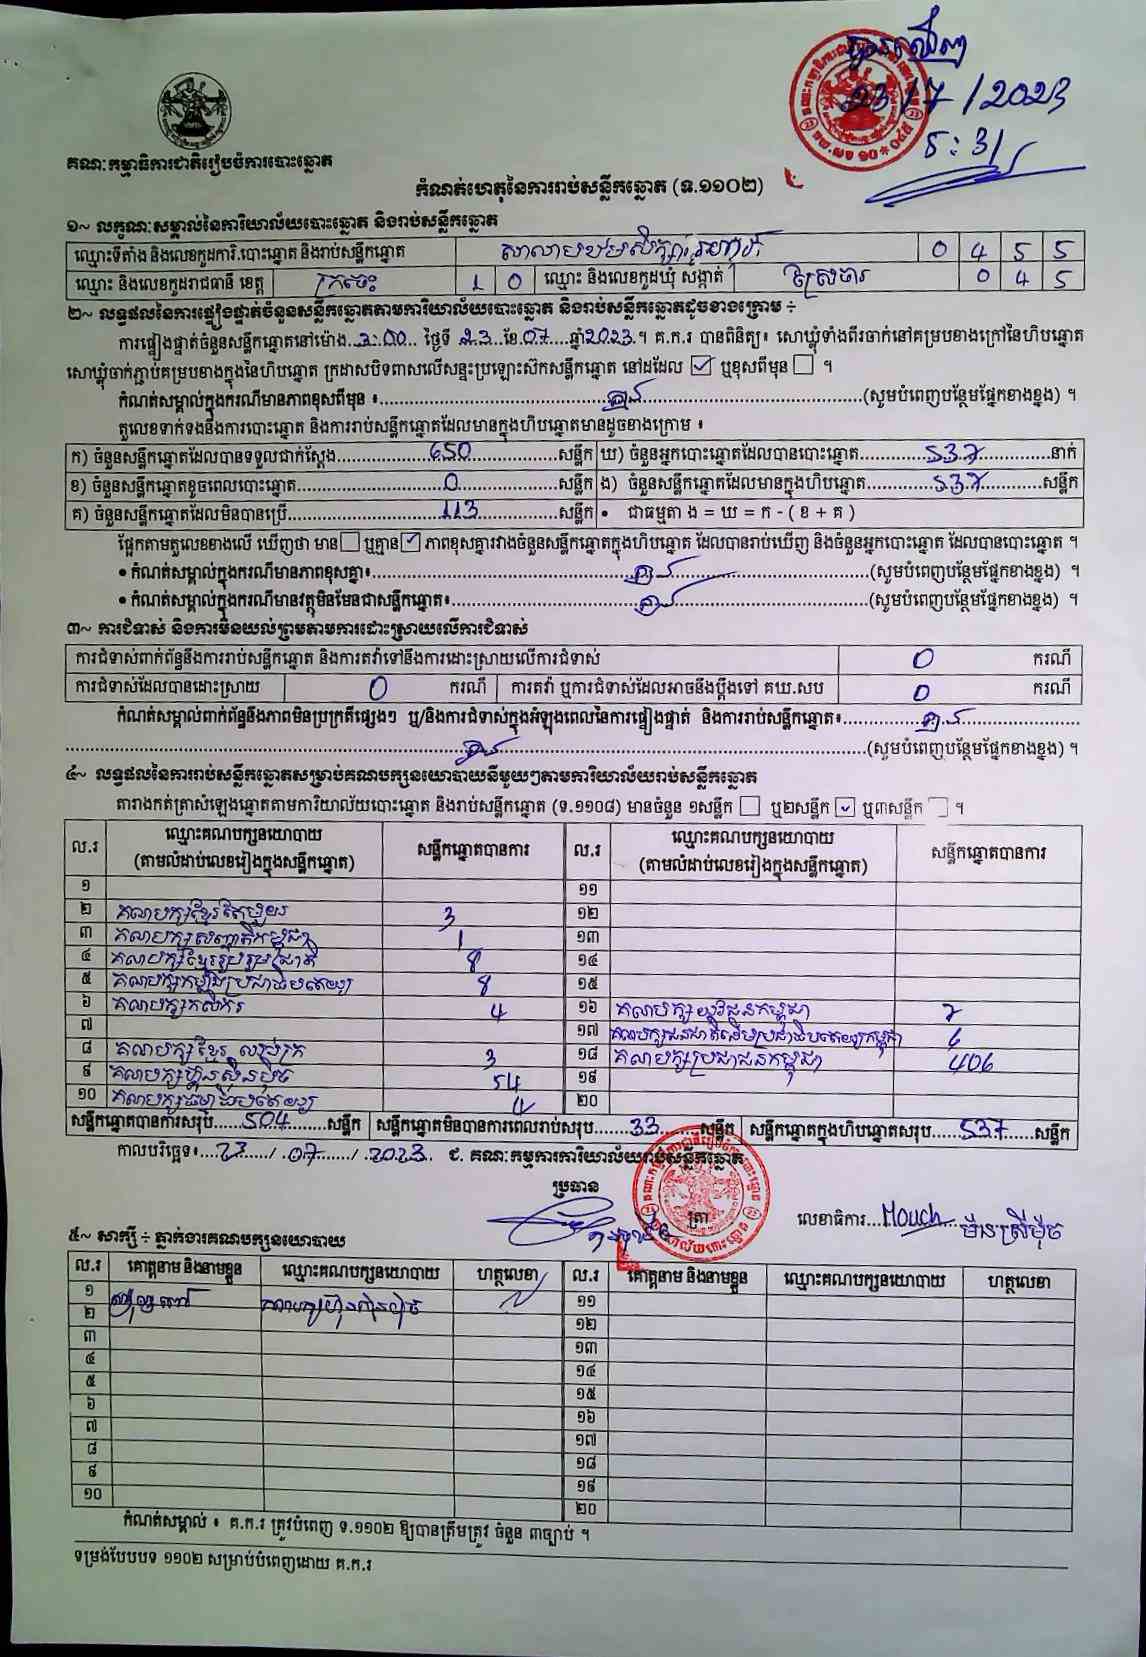 បានឃើញ
23/7/2023
៥:31
គណៈកម្មាធិការជាតិរៀបចំការបោះឆ្នោត
កំណត់ហេតុនៃការរាប់សន្លឹកឆ្នោត (ទ.១១០២)
១~ លក្ខណៈសម្គាល់នៃការិយាល័យបោះឆ្នោត និងរាប់សន្លឹកឆ្នោត
ឈ្មោះទីតាំង និងលេខកូដការិ.បោះឆ្នោត និងរាប់សន្លឹកឆ្នោត សាលាបឋមសិក្សា 0 4 5 5
ឈ្មោះ និងលេខកូដរាជធានី ខេត្ត ក្រចេះ 1 0 ឈ្មោះ និងលេខកូដឃុំ សង្កាត់ ស្រែចារ 0 4 5
២~ លទ្ធផលនៃការផ្ទៀងផ្ទាត់ចំនួនសន្លឹកឆ្នោតតាមការិយាល័យបោះឆ្នោត និងរាប់សន្លឹកឆ្នោតដូចខាងក្រោម ÷
ការផ្ទៀងផ្ទាត់ចំនួនសន្លឹកឆ្នោតនៅម៉ោង..3:00.. ថ្ងៃទី 23.ខែ.07...ឆ្នាំ2023.។ គ.ក.រ បានពិនិត្យ៖ សោឃ្លុំទាំងពីរចាក់នៅគម្របខាងក្រៅនៃហិបឆ្នោត
សោឃ្លុំចាក់ភ្ជាប់គម្របខាងក្នុងនៃហិបឆ្នោត ក្រដាសបិទពាសលើសន្ទះប្រឡោះស៊កសន្លឹកឆ្នោត នៅដដែល ☑ ឬខុសពីមុន ☐ ។
កំណត់សម្គាល់ក្នុងករណីមានភាពខុសពីមុន ៖........គ្មាន........(សូមបំពេញបន្ថែមផ្នែកខាងខ្នង) ។
តួលេខទាក់ទងនឹងការបោះឆ្នោត និងការរាប់សន្លឹកឆ្នោតដែលមានក្នុងហិបឆ្នោតមានដូចខាងក្រោម ៖
ក) ចំនួនសន្លឹកឆ្នោតដែលបានទទួលជាក់ស្តែង........650........សន្លឹក ឃ) ចំនួនអ្នកបោះឆ្នោតដែលបានបោះឆ្នោត........537........នាក់
ខ) ចំនួនសន្លឹកឆ្នោតខូចពេលបោះឆ្នោត........0........សន្លឹក ង) ចំនួនសន្លឹកឆ្នោតដែលមានក្នុងហិបឆ្នោត........537........សន្លឹក
គ) ចំនួនសន្លឹកឆ្នោតដែលមិនបានប្រើ........113........សន្លឹក • ជាធម្មតា ង = ឃ = ក - ( ខ + គ )
ផ្អែកតាមតួលេខខាងលើ ឃើញថា មាន ☐ ឬគ្មាន ☑ ភាពខុសគ្នារវាងចំនួនសន្លឹកឆ្នោតក្នុងហិបឆ្នោត ដែលបានរាប់ឃើញ និងចំនួនអ្នកបោះឆ្នោត ដែលបានបោះឆ្នោត ។
• កំណត់សម្គាល់ក្នុងករណីមានភាពខុសគ្នា៖........គ្មាន........(សូមបំពេញបន្ថែមផ្នែកខាងខ្នង) ។
• កំណត់សម្គាល់ក្នុងករណីមានវត្ថុមិនមែនជាសន្លឹកឆ្នោត៖........គ្មាន........(សូមបំពេញបន្ថែមផ្នែកខាងខ្នង) ។
៣~ ការជំទាស់ និងការមិនយល់ព្រមតាមការដោះស្រាយលើការជំទាស់
ការជំទាស់ពាក់ព័ន្ធនឹងការរាប់សន្លឹកឆ្នោត និងការតវ៉ាទៅនឹងការដោះស្រាយលើការជំទាស់ 0 ករណី
ការជំទាស់ដែលបានដោះស្រាយ 0 ករណី ការតវ៉ា ឬការជំទាស់ដែលអាចនឹងប្តឹងទៅ គឃ.សប 0 ករណី
កំណត់សម្គាល់ពាក់ព័ន្ធនឹងភាពមិនប្រក្រតីផ្សេងៗ ឬ/និងការជំទាស់ក្នុងអំឡុងពេលនៃការផ្ទៀងផ្ទាត់ និងការរាប់សន្លឹកឆ្នោត៖........គ្មាន........
........គ្មាន........(សូមបំពេញបន្ថែមផ្នែកខាងខ្នង) ។
៤~ លទ្ធផលនៃការរាប់សន្លឹកឆ្នោតសម្រាប់គណបក្សនយោបាយនីមួយៗតាមការិយាល័យរាប់សន្លឹកឆ្នោត
តារាងកត់ត្រាសំឡេងឆ្នោតតាមការិយាល័យបោះឆ្នោត និងរាប់សន្លឹកឆ្នោត (ទ.១១០៨) មានចំនួន ១សន្លឹក ☐ ឬ២សន្លឹក ☑ ឬ៣សន្លឹក ☐ ។
ល.រ ឈ្មោះគណបក្សនយោបាយ (តាមលំដាប់លេខរៀងក្នុងសន្លឹកឆ្នោត) សន្លឹកឆ្នោតបានការ ល.រ ឈ្មោះគណបក្សនយោបាយ (តាមលំដាប់លេខរៀងក្នុងសន្លឹកឆ្នោត) សន្លឹកឆ្នោតបានការ
១ ១១
២ គណបក្សខ្មែរតែមួយ 3 ១២
៣ គណបក្សសញ្ជាតិកម្ពុជា 1 ១៣
៤ គណបក្សខ្មែររួបរួមជាតិ 8 ១៤
៥ គណបក្សកម្លាំងប្រជាធិបតេយ្យ 8 ១៥
៦ គណបក្សកសិករ 4 ១៦ គណបក្សយុវជនកម្ពុជា 7
៧ ១៧ គណបក្សជនជាតិដើមប្រជាធិបតេយ្យកម្ពុជា 6
៨ គណបក្សខ្មែរ 3 ១៨ គណបក្សប្រជាជនកម្ពុជា 406
៩ គណបក្សហ៊្វុនស៊ិនប៉ិច 54 ១៩
១០ គណបក្សធម្មាធិបតេយ្យ 4 ២០
សន្លឹកឆ្នោតបានការសរុប......504......សន្លឹក សន្លឹកឆ្នោតមិនបានការពេលរាប់សរុប......33......សន្លឹក សន្លឹកឆ្នោតក្នុងហិបឆ្នោតសរុប......537......សន្លឹក
កាលបរិច្ឆេទ៖...23..../..07..../..2023.. ជ. គណៈកម្មការការិយាល័យរាប់សន្លឹកឆ្នោត
ប្រធាន
ត្រា
លេខាធិការ...Mouch... ម៉នស្រីម៉ុច
៥~ សាក្សី ÷ ភ្នាក់ងារគណបក្សនយោបាយ
ល.រ គោត្តនាម និងនាមខ្លួន ឈ្មោះគណបក្សនយោបាយ ហត្ថលេខា ល.រ គោត្តនាម និងនាមខ្លួន ឈ្មោះគណបក្សនយោបាយ ហត្ថលេខា
១ គណបក្សហ៊្វុនស៊ិនប៉ិច ១១
២ ១២
៣ ១៣
៤ ១៤
៥ ១៥
៦ ១៦
៧ ១៧
៨ ១៨
៩ ១៩
១០ ២០
កំណត់សម្គាល់ ៖ គ.ក.រ ត្រូវបំពេញ ទ.១១០២ ឱ្យបានត្រឹមត្រូវ ចំនួន ៣ច្បាប់ ។
ទម្រង់បែបបទ ១១០២ សម្រាប់បំពេញដោយ គ.ក.រ